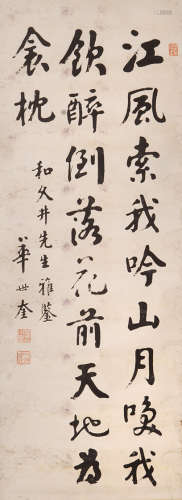 江風索我吟山月喚我
飲醉倒落花前天地為
衾枕
和父井先生雅鑒
華世奎